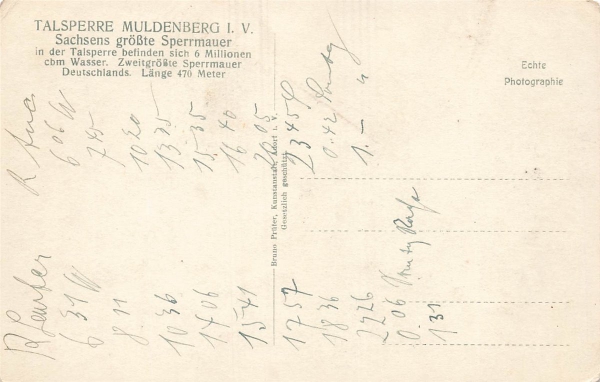 TALSPERRE MULDENBERG I. V.
Sachsens größte Sperrmauer
in der Talsperre befinden sich 6 Millionen
cbm Wasser. Zweitgrößte Sperrmauer
Deutschlands. Länge 470 Meter
Echte
Photographie
Bruno Prüfer, Kunstanstalt, Adorf i. V.
Gesetzlich geschützt.
6 06 W
7 45
10 20
13 25
15 35
16 40
20 05
23 45 S
0.42
1.–
6 31 W
8 11
10 36
14 06
15 41
17 57
18 36
22 26
0.06
1 31